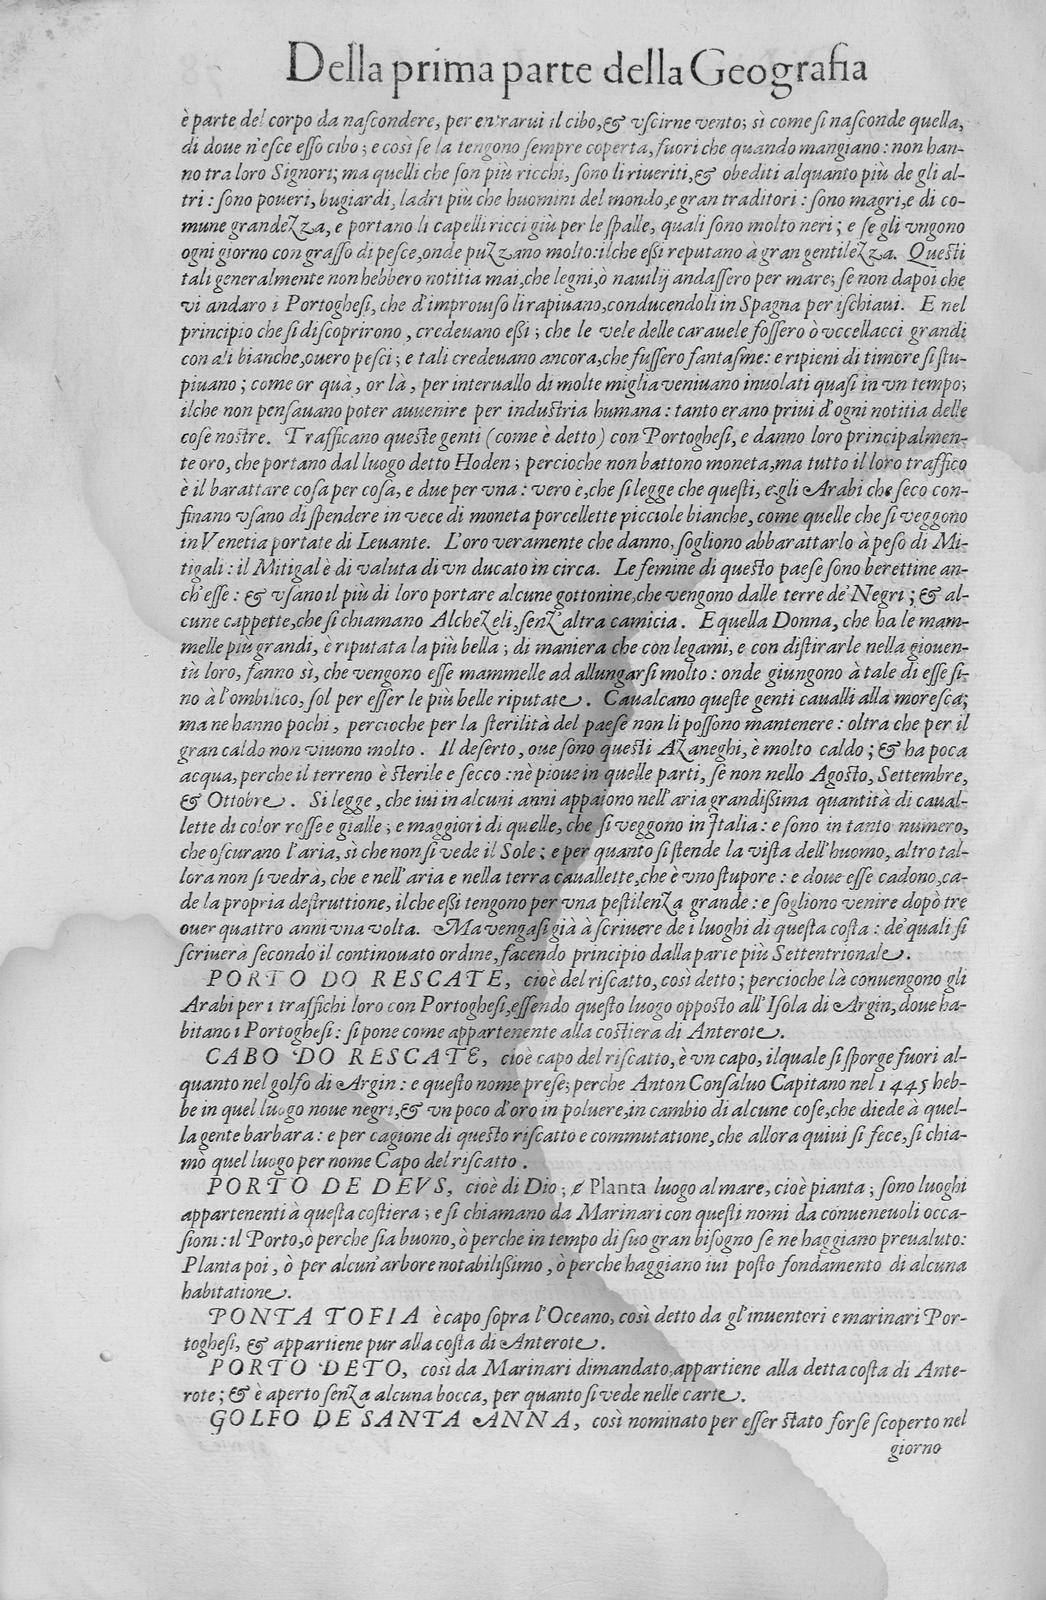 Della prima parte della Geografia
è parte del corpo da naſcondere, per entrarui il cibo, & vſcirne vento; sì come ſi naſconde quella,
di doue n'eſce eſſo cibo; e così ſe la tengono ſempre coperta, fuori che quando mangiano: non han-
no tra loro Signori; ma quelli che ſon più ricchi, ſono li riueriti, & obediti alquanto più de gli al-
tri: ſono poueri, bugiardi, ladri più che huomini del mondo, e gran traditori: ſono magri, e di co-
mune grandezza, e portano li capelli ricci giù per le ſpalle, quali ſono molto neri; e ſe gli vngono
ogni giorno con graſſo di peſce, onde puzzano molto: ilche eßi reputano à gran gentilezza. Queſti
tali generalmente non hebbero notitia mai, che legni, ò nauilij andaſſero per mare; ſe non dapoi che
vi andaro i Portogheſi, che d'improuiſo li rapiuano, conducendoli in Spagna per iſchiaui. E nel
principio che ſi diſcoprirono, credeuano eßi; che le vele delle carauele foſſero ò vccellacci grandi
con ali bianche, ouero peſci; e tali credeuano ancora, che fuſſero fantaſme: e ripieni di timore ſi ſtu-
piuano; come or quà, or là, per interuallo di molte miglia veniuano inuolati quaſi in vn tempo;
ilche non penſauano poter auuenire per induſtria humana: tanto erano priui d'ogni notitia delle
coſe noſtre. Trafficano queſte genti (come è detto) con Portogheſi, e danno loro principalmen-
te oro, che portano dal luogo detto Hoden; percioche non battono moneta, ma tutto il loro traffico
è il barattare coſa per coſa, e due per vna: vero è, che ſi legge che queſti, e gli Arabi che ſeco con-
finano vſano di ſpendere in vece di moneta porcellette picciole bianche, come quelle che ſi veggono
in Venetia portate di Leuante. L'oro veramente che danno, ſogliono abbarattarlo à peſo di Mi-
tigali: il Mitigal è di valuta di vn ducato in circa. Le femine di queſto paeſe ſono berettine an-
ch'eſſe: & vſano il più di loro portare alcune gottonine, che vengono dalle terre de' Negri; & al-
cune cappette, che ſi chiamano Alchezeli, ſenz'altra camicia. E quella Donna, che ha le mam-
melle più grandi, è riputata la più bella; di maniera che con legami, e con diſtirarle nella giouen-
tù loro, fanno sì, che vengono eſſe mammelle ad allungarſi molto: onde giungono à tale di eſſe ſi-
no à l'ombilico, ſol per eſſer le più belle riputate. Caualcano queſte genti caualli alla moreſca;
ma ne hanno pochi, percioche per la ſterilità del paeſe non li poſſono mantenere: oltra che per il
gran caldo non viuono molto. Il deſerto, oue ſono queſti Azaneghi, è molto caldo; & ha poca
acqua, perche il terreno è ſterile e ſecco: nè pioue in quelle parti, ſe non nello Agoſto, Settembre,
& Ottobre. Si legge, che iui in alcuni anni appaiono nell'aria grandißima quantità di caual-
lette di color roſſe e gialle; e maggiori di quelle, che ſi veggono in Italia: e ſono in tanto numero,
che oſcurano l'aria, sì che non ſi vede il Sole; e per quanto ſi ſtende la viſta dell'huomo, altro tal-
lora non ſi vedrà, che e nell'aria e nella terra cauallette, che è vno ſtupore: e doue eſſe cadono, ca-
de la propria deſtruttione, ilche eßi tengono per vna peſtilenza grande: e ſogliono venire dopò tre
ouer quattro anni vna volta. Ma vengaſi già à ſcriuere de i luoghi di queſta coſta: de' quali ſi
ſcriuerà ſecondo il continouato ordine, facendo principio dalla parte più Settentrionale.
PORTO DO RESCATE, cioè del riſcatto, così detto; percioche là conuengono gli
Arabi per i traffichi loro con Portogheſi, eſſendo queſto luogo oppoſto all'Iſola di Argin, doue ha-
bitano i Portogheſi: ſi pone come appartenente alla coſtiera di Anterote.
CABO DO RESCATE, cioè capo del riſcatto, è vn capo, ilquale ſi ſporge fuori al-
quanto nel golfo di Argin: e queſto nome preſe; perche Anton Conſaluo Capitano nel 1445 heb-
be in quel luogo noue negri, & vn poco d'oro in poluere, in cambio di alcune coſe, che diede à quel-
la gente barbara: e per cagione di queſto riſcatto e commutatione, che allora quiui ſi fece, ſi chia-
mò quel luogo per nome Capo del riſcatto.
PORTO DE DEVS, cioè di Dio; e Planta luogo al mare, cioè pianta; ſono luoghi
appartenenti à queſta coſtiera; e ſi chiamano da Marinari con queſti nomi da conueneuoli occa-
ſioni: il Porto, ò perche ſia buono, ò perche in tempo di ſuo gran biſogno ſe ne haggiano preualuto:
Planta poi, ò per alcun'arbore notabilißimo, ò perche haggiano iui poſto fondamento di alcuna
habitatione.
PONTA TOFIA è capo ſopra l'Oceano, così detto da gl'inuentori e marinari Por-
togheſi, & appartiene pur alla coſta di Anterote.
PORTO DETO, così da Marinari dimandato, appartiene alla detta coſta di Ante-
rote; & è aperto ſenza alcuna bocca, per quanto ſi vede nelle carte.
GOLFO DE SANTA ANNA, così nominato per eſſer ſtato forſe ſcoperto nel
giorno